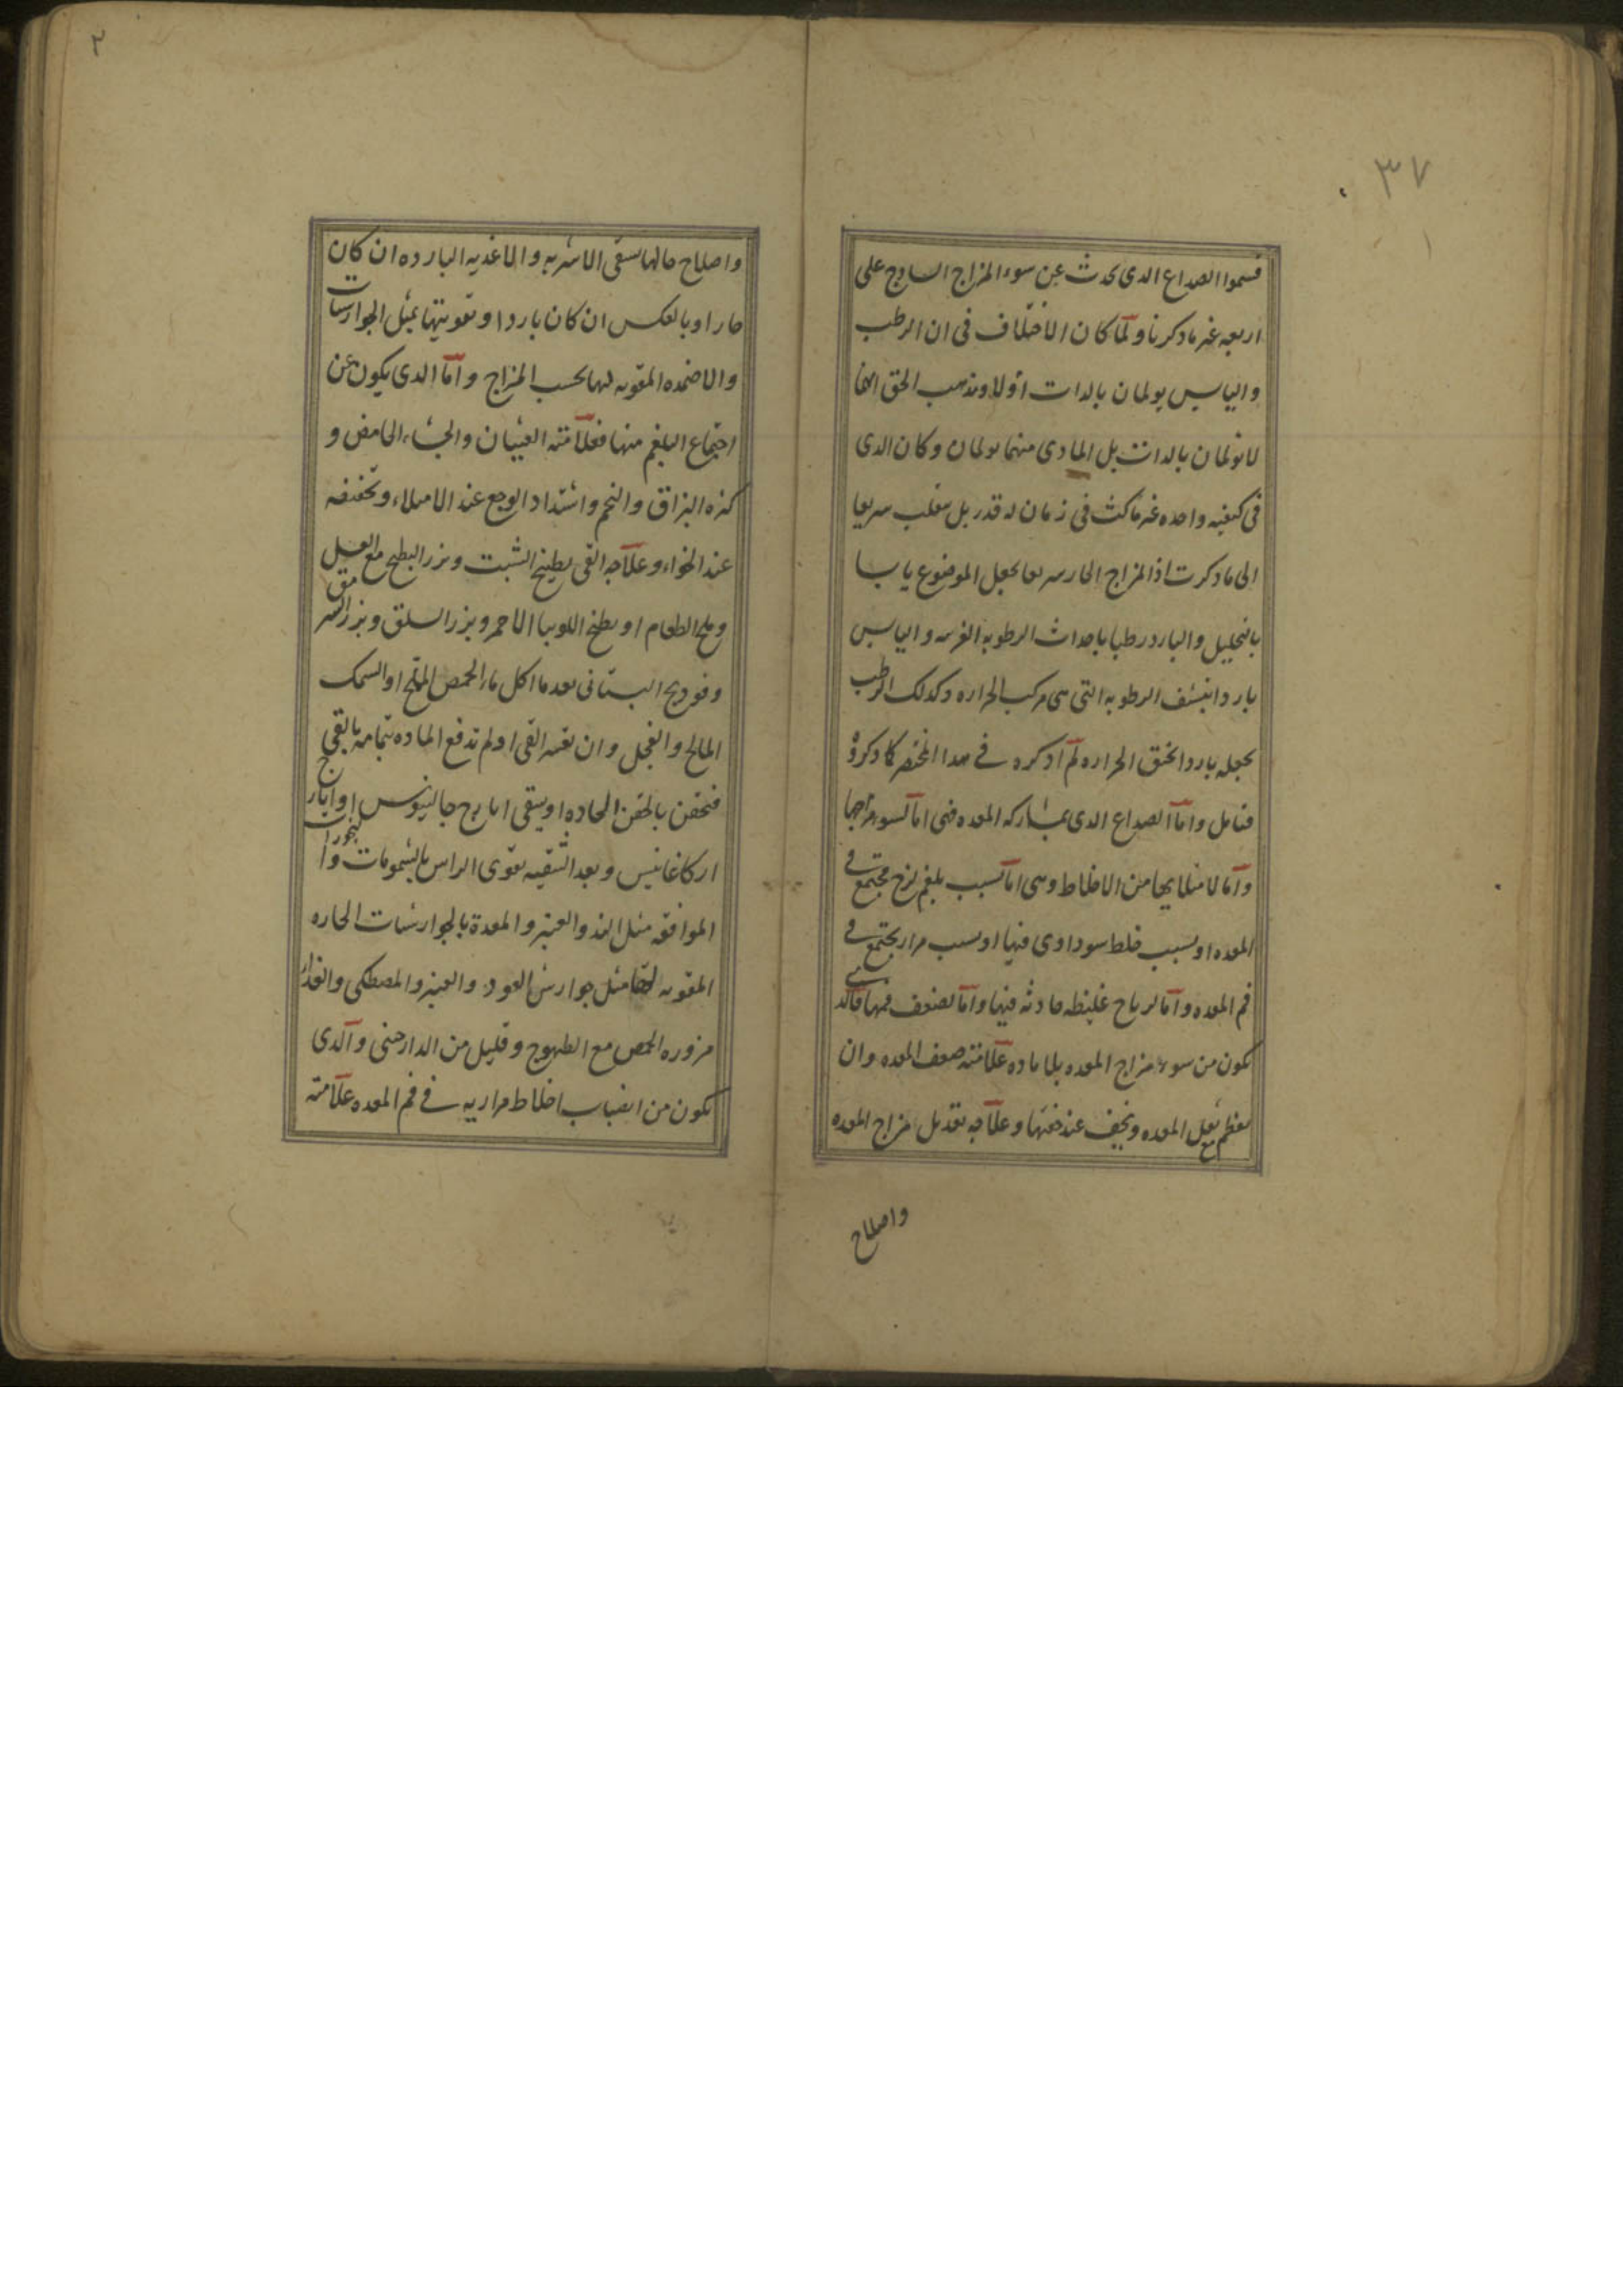 ٣٧
١
قسموا الصداع الدى يحدث عن سوء المزاج السادج على
اربعه غير ما دكرنا ولما كان الاختلاف فى ان الرطب
واليابس يولمان بالدات اولا ومذهب الحق انهما
لا يولمان بالدات بل المادى منهما يولمان وكان الدى
فى كيفيه واحده غير ماكث فى زمان له قدر بل ينقلب سريعا
الى ما دكرت اذ المزاج الحار سريعا يجعل الموضوع يابسا
بالتحليل والبارد رطبا باحداث الرطوبه الغريبه واليابس
باردا بنشف الرطوبه التى هى مركب الحراره وكدلك الرطب
يجعله باردا بخنق الحراره لم ادكره فى هدا المختصر كما دكروه
فتامل واما الصداع الدى بمشاركه المعده فهى اما لسو مزاجها
واما لامتلايها من الاخلاط وهى اما بسبب بلغم لزج مجتمع فى
المعده او بسبب خلط سوداوى فيها او بسبب مرار يجتمع فى
فم المعده واما لرياح غليظه حادثه فيها واما لضعف فمها فالدى
يكون من سوء مزاج المعده بلا ماده علامته ضعف المعده وان
يعظم مع ثقل المعده ويخف عند خفتها وعلاجه تعديل مزاج المعده
واصلاح
٢
واصلاح حالها بسقى الاشربه والاغديه البارده ان كان
حارا وبالعكس ان كان باردا وتقويتها بمثل الجوارشات
والاضمده المقويه لها بحسب المزاج واما الدى يكون عن
اجتماع البلغم منها فعلامته الغثيان والجشاء الحامض و
كثره البزاق والتخم واشتداد الوجع عند الامتلاء وتخفيفه
عند الخواء وعلاجه القى بطبيخ الشبت وبزر البطيخ مع العسل
وملح الطعام او بطبخ اللوبيا الاحمر وبزر السلق وبزر السرمق
وفوديج البستانى بعد ما اكل ماء الحمص المملح او السمك
المالح والفجل وان تعسر القى او لم تدفع الماده بتمامه بالقى
فتحقن بالحقن الحاده او يسقى ايارج جالينوس او ايارج
اركاغانيس وبعد التنقيه يقوى الراس بالشمومات والبخورات
الموافقه مثل الند والعنبر والمعدة بالجوارشات الحاره
المقويه لها مثل جوارش العود والعنبر والمصطكى والغداء
مزوره الحمص مع الطيهوج وقليل من الدارچنى والدى
يكون من انصباب اخلاط مراريه فى فم المعده علامته